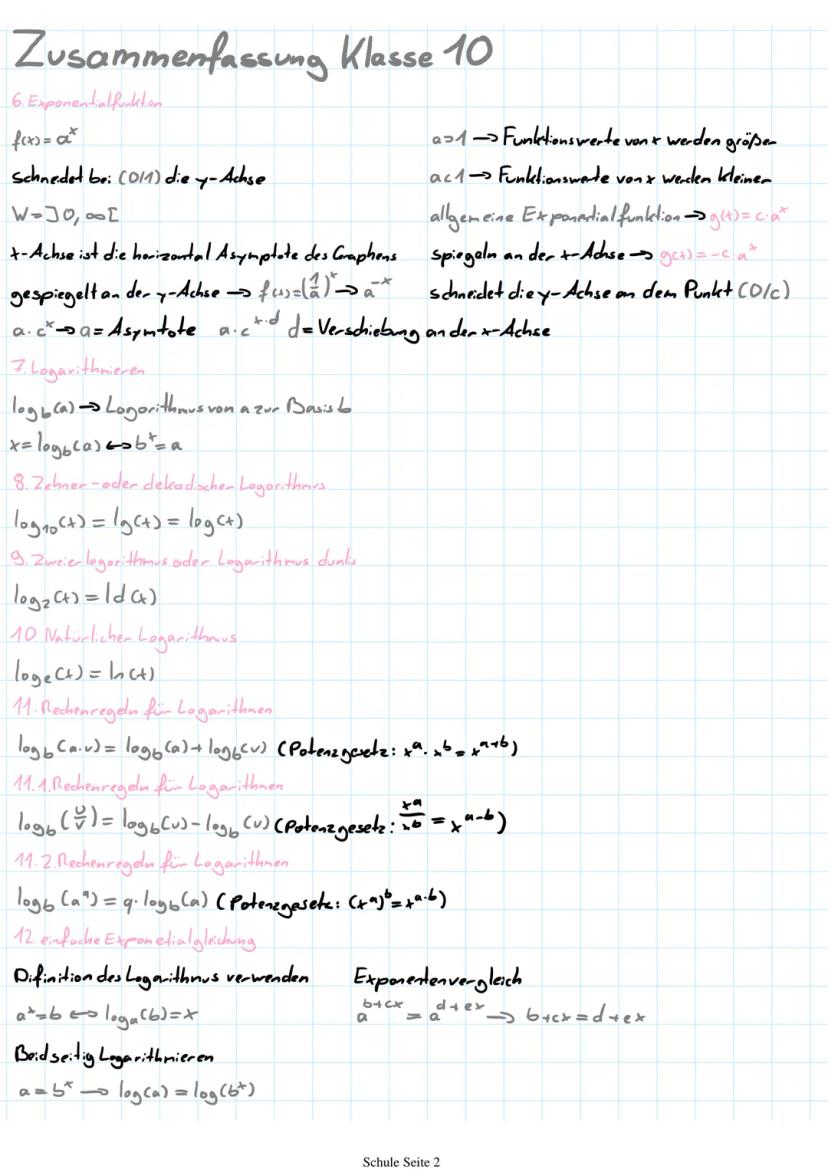 Zusammenfassung Klasse 10
6. Exponentialfunktion
f(x) = a^x
schneidet bei (0/1) die y-Achse
W = ]0, ∞[
x-Achse ist die horizontal Asymptote des Graphens
gespiegelt an der y-Achse → f(x) = (1/a)^x → a^-x
a>1 → Funktionswerte von x werden größer
a<1 → Funktionswerte von x werden kleiner
allgemeine Exponentialfunktion → g(x) = c·a^x
spiegeln an der x-Achse → g(x) = -c·a^x
schneidet die y-Achse an dem Punkt (0/c)
a·c^x → a = Asymtote a·c^x·d d = Verschiebung an der x-Achse
7. Logarithmieren
log_b(a) → Logarithmus von a zur Basis b
x = log_b(a) ↔ b^x = a
8. Zehner- oder dekadischer Logarithmus
log_10(x) = lg(x) = log(x)
9. Zweierlogarithmus oder Logarithmus dualis
log_2(x) = ld(x)
10 Natürlicher Logarithmus
log_e(x) = ln(x)
11. Rechenregeln für Logarithmen
log_b(a·v) = log_b(a) + log_b(v) (Potenzgesetz: x^a · x^b = x^a+b)
11.1. Rechenregeln für Logarithmen
log_b(u/v) = log_b(u) - log_b(v) (Potenzgesetz: x^a/x^b = x^a-b)
11.2. Rechenregeln für Logarithmen
log_b(a^q) = q·log_b(a) (Potenzgesetz: (x^a)^b = x^a·b)
12. einfache Exponetialgleichung
Difinition des Logarithmus verwenden
a^x = b ↔ log_a(b) = x
Exponentenvergleich
a^b+cx = a^d+ex → b+cx = d+ex
Beidseitig Logarithmieren
a = b^x → log(a) = log(b^x)
Schule Seite 2